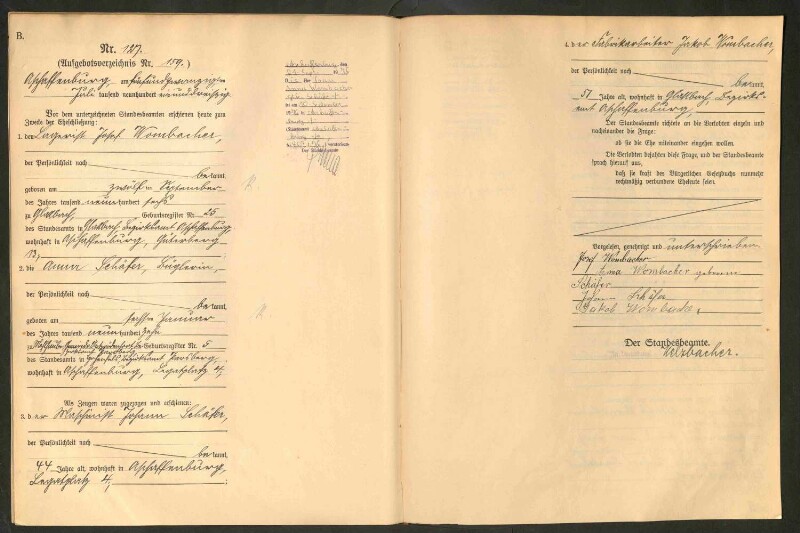 B.
Nr. 127.
(Aufgebotsverzeichnis Nr. 159.)
Aschaffenburg, am fünfundzwanzigsten
Juli tausend neunhundert neununddreißig.
Vor dem unterzeichneten Standesbeamten erschienen heute zum
Zwecke der Eheschließung:
1. der Lagerist Josef Wombacher,
der Persönlichkeit nach
bekannt,
geboren am zwölften September
des Jahres tausend neunhundert sechs
zu Glattbach, Geburtsregister Nr. 25
des Standesamts in Glattbach Bezirksamt Aschaffenburg,
wohnhaft in Aschaffenburg, Güterberg
13,
2. die Anna Schäfer, Büglerin,
der Persönlichkeit nach
bekannt,
geboren am sechsten Januar
des Jahres tausend neunhundert zehn
zu Geburtsregister Nr. 5
des Standesamts in Bezirksamt
wohnhaft in Aschaffenburg, Legatplatz 4,
Als Zeugen waren zugezogen und erschienen:
3. der Maschinist Johann Schäfer,
der Persönlichkeit nach
bekannt,
44 Jahre alt, wohnhaft in Aschaffenburg,
Legatplatz 4;
Der Standesbeamte
4. der Fabrikarbeiter Jakob Wombacher,
der Persönlichkeit nach
bekannt,
57 Jahre alt, wohnhaft in Glattbach, Bezirks-
amt Aschaffenburg,
Der Standesbeamte richtete an die Verlobten einzeln und
nacheinander die Frage:
ob sie die Ehe miteinander eingehen wollen.
Die Verlobten bejahten diese Frage, und der Standesbeamte
sprach hierauf aus,
daß sie kraft des Bürgerlichen Gesetzbuchs nunmehr
rechtmäßig verbundene Eheleute seien.
Vorgelesen, genehmigt und unterschrieben
Josef Wombacher
Anna Wombacher geborene
Schäfer
Johann Schäfer
Jakob Wombacher,
Der Standesbeamte.